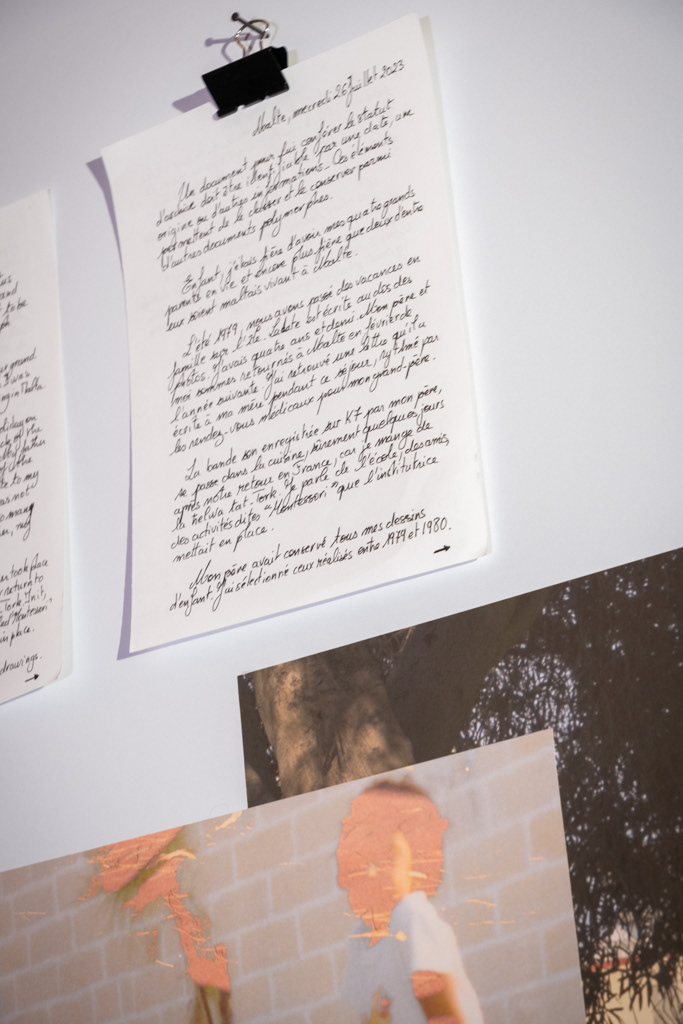 Malte, mercredi 26 Juillet 2023
Un document pour lui conférer le statut
d'archive doit être identifiable par une date, une
origine ou d'autres informations. Ces éléments
permettent de le classer et le conserver parmi
d'autres documents polymorphes.
Enfant, j'étais fière d'avoir mes quatre grands
parents en vie et encore plus fière que deux d'entre
eux soient maltais vivant à Malte.
L'été 1979, nous avons passé des vacances en
famille sur l'île. La date est écrite au dos des
photos. J'avais quatre ans et demi. Mon père et
moi sommes retournés à Malte en février de
l'année suivante. J'ai retrouvé une lettre qu'il a
écrite à ma mère pendant ce séjour, rythmé par
les rendez-vous médicaux pour mon grand-père.
La bande son enregistrée sur K7 par mon père,
se passe dans la cuisine, sûrement quelques jours
après notre retour en France, car je mange de
la helwa tat-Tork. Je parle de l'école, des amis,
des activités dites "Montessori" que l'institutrice
mettait en place.
Mon père avait conservé tous mes dessins
d'enfant. J'ai sélectionné ceux réalisés entre 1979 et 1980.
→
and
to be
grand
I was
in Malta.
holiday on
of the
father
to my
was not
many
took place
return to
Tork. Init,
Montessori"
in place.
drawings.
→